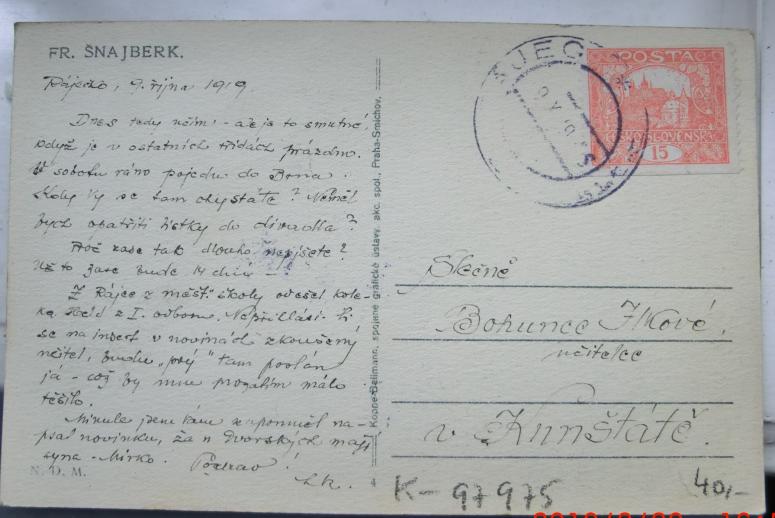 FR. ŠNAJBERK.
Ráječko, 9. října 1919
Dnes tedy učím - ale je to smutné,
když je v ostatních třídách prázdno.
V sobotu ráno pojedu do Brna.
Kdy Vy se tam chystáte? Neměl
bych opatřiti lístky do divadla?
Proč zase tak dlouho nepíšete?
Už to zase bude 14 dnů -
Z Rájce z měšť. školy odešel kole-
ga Heid z I. odboru. Nepřihlásí-li
se na inserát v novinách zkoušený
učitel, budu "prý" tam poslán
já - což by mne pramálo
těšilo.
Minule jsem Vám zapomněl na-
psat novinku, že u Dvorských mají
syna - Mirko. Pozdrav!
N. D. M.
Koppe-Bellmann, spojené grafické ústavy, akc. spol., Praha-Smíchov.
POSTA
ČESKO-SLOVENSKÁ
15
Slečně
Bohunce Jkové,
učitelce
v Kunštátě.
K- 97975
40,-